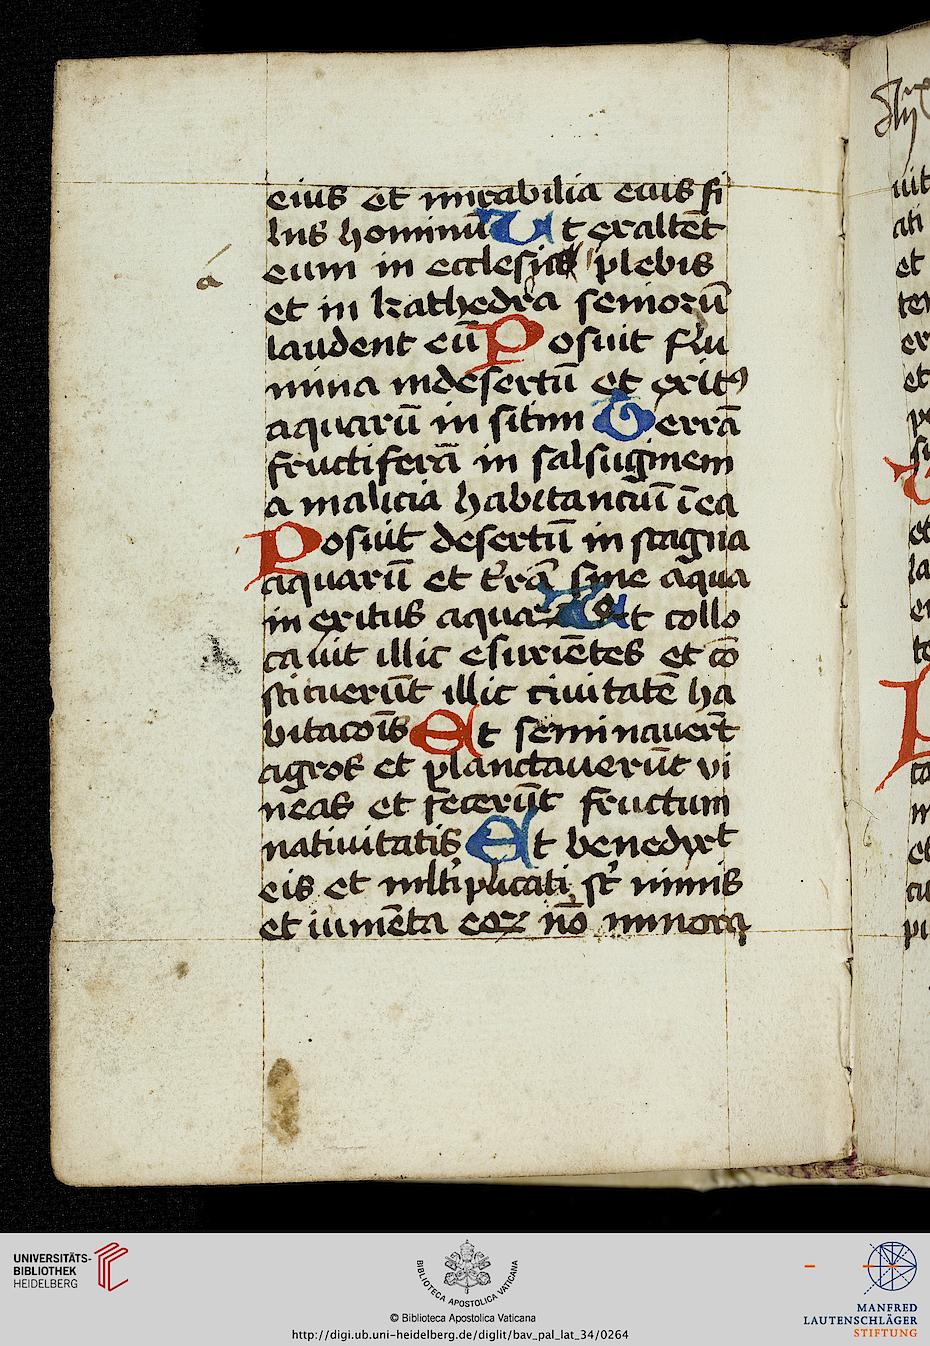 eius et mirabilia eius fi
lus hominū Ut exaltēt
eum in ecclesia plebis
et in kathedra seniorū
laudent eū Posuit flu
mina indesertū et exitꝰ
aquarū in sitim Terrā
fructiferā in salsuginem
a malicia habitanciū ī ea
Posuit desertū in stagna
aquarū et t̄rā sine aqua
in exitus aquaꝝ Et collo
cauit illic esuriētes et cō
stituerūt illic ciuitatē ha
bitacōis Et seminauert̄
agros et planctauerūt vi
neas et fecerūt fructum
natiuitatis Et benedixt
eis et mltiplicati st̄ nimis
et iumēta eoꝝ nō minora
a
UNIVERSITÄTS-
BIBLIOTHEK
HEIDELBERG
BIBLIOTECA APOSTOLICA VATICANA
© Biblioteca Apostolica Vaticana
http://digi.ub.uni-heidelberg.de/diglit/bav_pal_lat_34/0264
MANFRED
LAUTENSCHLÄGER
STIFTUNG